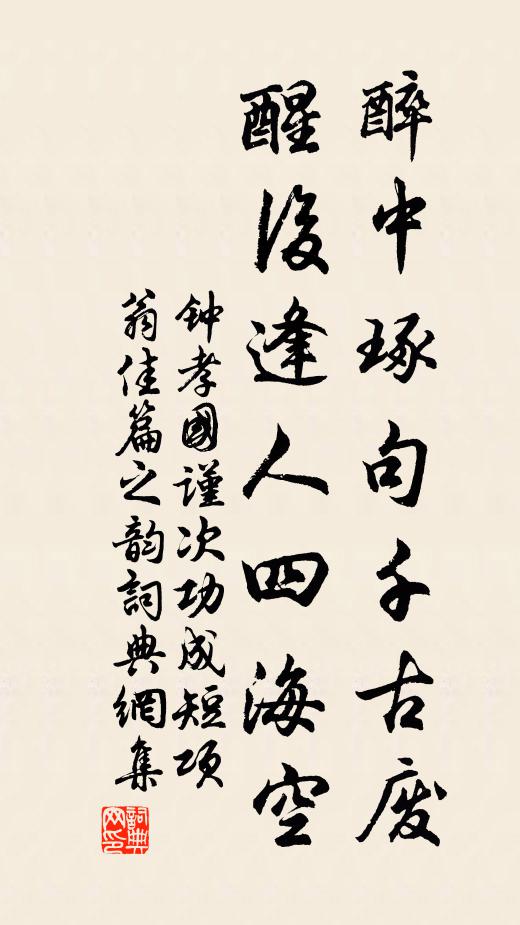 醉中琢句千古废
醒後逢人四海空
钟孝國謹次功成短项
翁佳篇之韵詞典網集
詞典网印